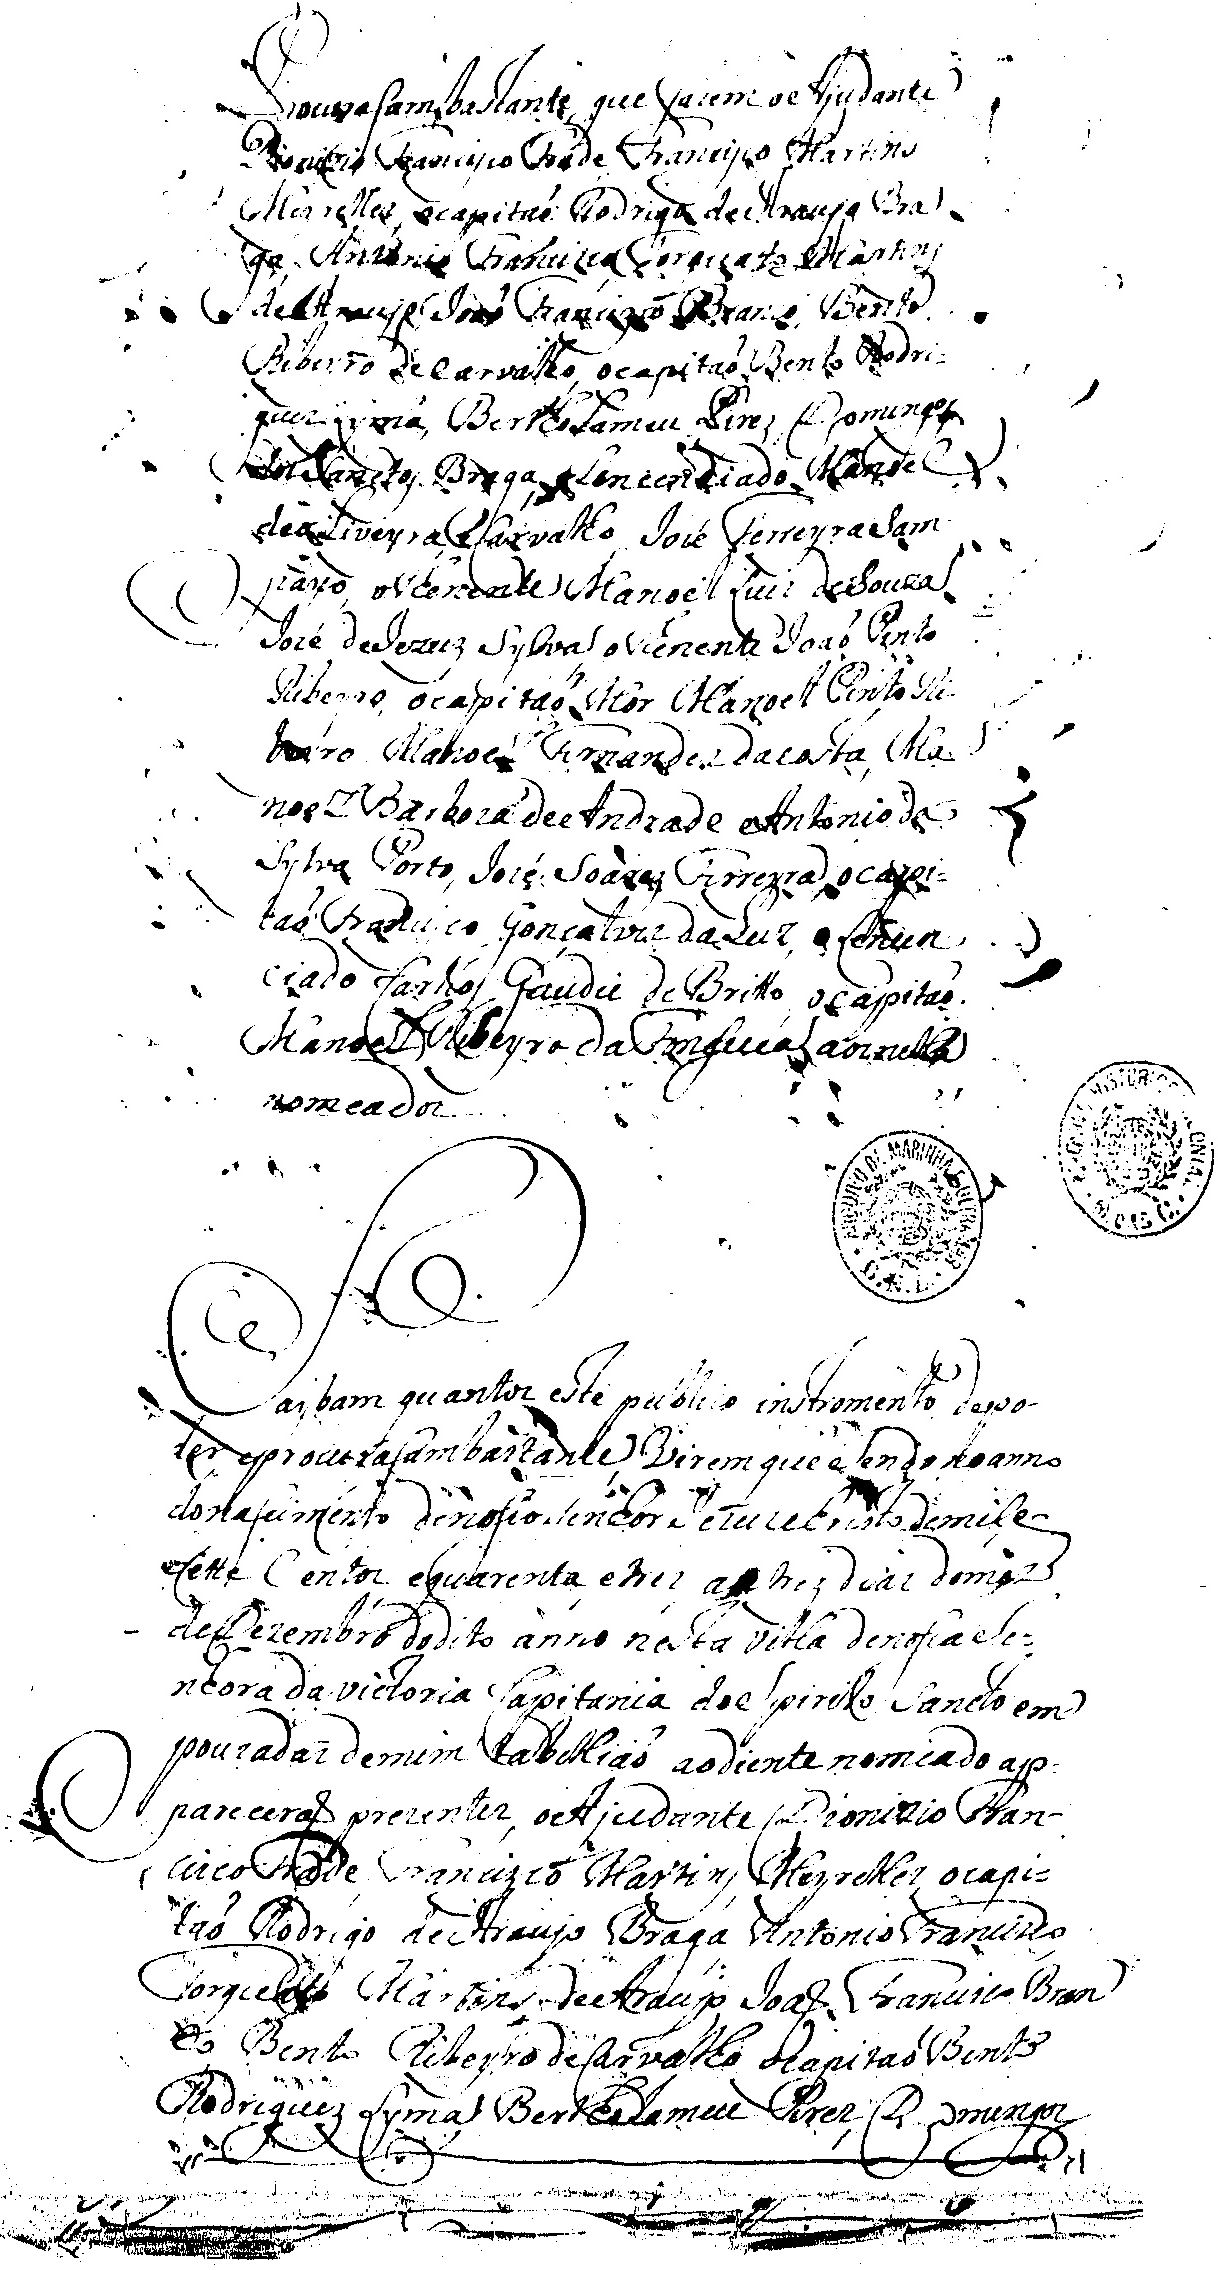 Procurasam bastante, que fazem oe Ajudante
Dionizio Francisco Frade Francisco Martins
Meyrelles, ocapitaó Rodrigo deAraujo Bra
ga Antonio Francisco Torquato Martins
deAraujo Joaó Francisco Branco, Bento
Ribeyro deCarvalho, ocapitaó Bento Rodri-
guez Lyma, Bertholameu Pirez, Domingos
dos Sanctos Braga, oLencenciado Manoel
deoLiveyra, eCarvalho, José Ferreyra Sam
payo, oThenente Manoel Luiz deSouza
José deJezuz Sylva oThenente Joaó Pinto
Ribeyro, ocapitaó Mor Manoel Pinto Ri
beiro Manoel Fernandez dacosta, Ma
noel Barboza deeAndrade eAntonio da
Sylva Porto, José Soarez Ferreyra, ocapi-
taó Francisco Gonçalvez daLuz, oLencen
ciado Carlos Gaudie de Britto, ocapitaó
Manoel Ribeyro da Fonseca aoz nella
nomeadoz
Saybam quantoz este publico instromento depo-
der eprocurasam bastante Virem que eSendo noanno
donascimento denosso Senhor Jezuz eChristo demil e
Sette Centoz equarenta etrez aoz trez diaz domez
deDezembro dodito anno nesta Villa denossa Se-
nhora da Victoria Capitania doeSpirito Sancto em
pouzadaz demim tabelliaó aodiente nomeado ap-
pareceraó prezentez, oeAjudante Dionizio Fran-
cisco Frade Francizco Martins Meyrellez ocapi-
taó Rodrigo deeAraujo Braga Antonio Francisco
Torquato Martins deeAraujo Joaó Francisco Bran
co Bento Ribeyro deCarvalho ocapitaó Bento
Rodriguez Lyma Bertholameu Pirez, Domingoz